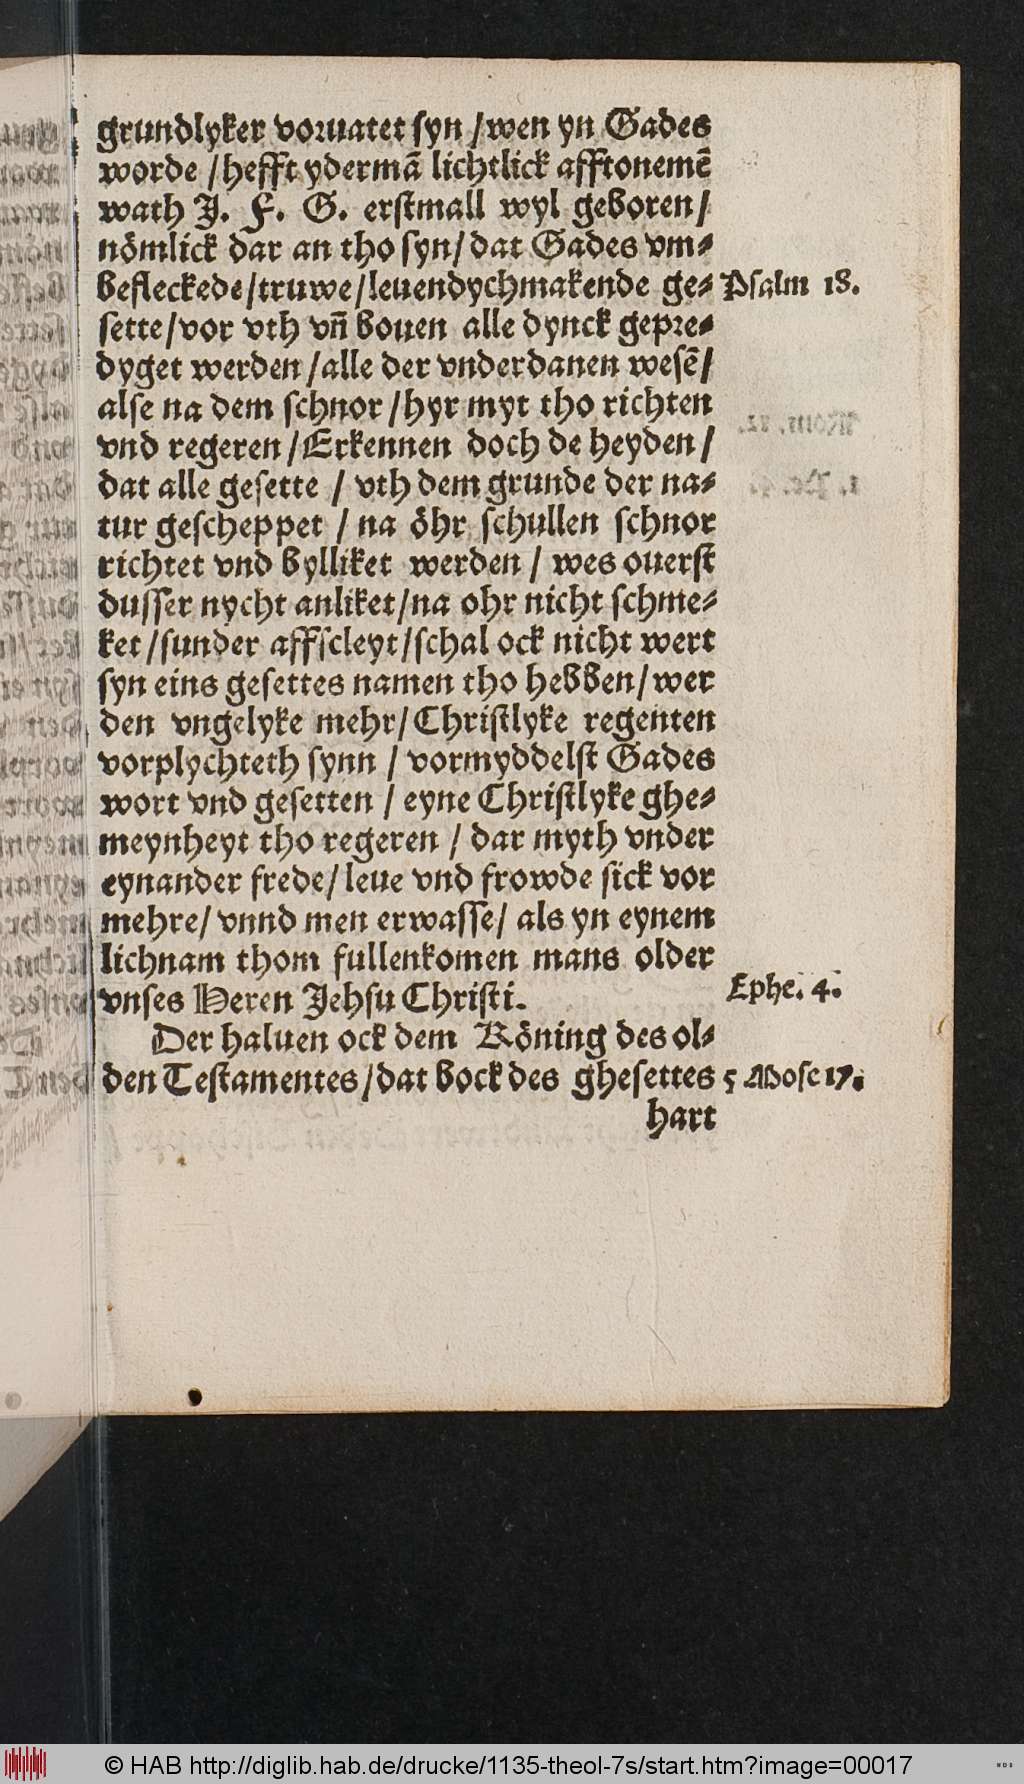 grundlyker voruatet syn / wen yn Gades
worde / hefft ydermā lichtlick afftonemē
wath J. F. G. erstmall wyl geboren /
nömlick dar an tho syn / dat Gades vm-
befleckede / truwe / leuendychmakende ge- Psalm 18.
sette / vor vth vn̄ bouen alle dynck gepre-
dyget werden / alle der vnderdanen wesē /
alse na dem schnor / hyr myt tho richten
vnd regeren / Erkennen doch de heyden /
dat alle gesette / vth dem grunde der na-
tur gescheppet / na öhr schullen schnor
richtet vnd bylliket werden / wes ouerst
dusser nycht anliket / na ohr nicht schme-
ket / sunder affscleyt / schal ock nicht wert
syn eins gesettes namen tho hebben / wer
den vngelyke mehr / Christlyke regenten
vorplychteth synn / vormyddelst Gades
wort vnd gesetten / eyne Christlyke ghe-
meynheyt tho regeren / dar myth vnder
eynander frede / leue vnd frowde sick vor
mehre / vnnd men erwasse / als yn eynem
lichnam thom fullenkomen mans older
vnses Heren Jehsu Christi. Ephe. 4.
Der haluen ock dem Köning des ol-
den Testamentes / dat bock des ghesettes 5 Mose 17.
hart
© HAB http://diglib.hab.de/drucke/1135-theol-7s/start.htm?image=00017